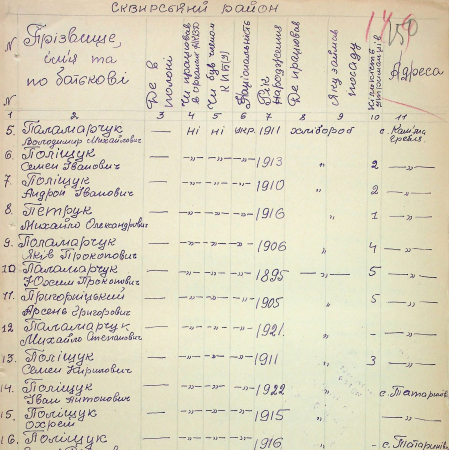 СКВИРСЬКИЙ РАЙОН
150
№ Прізвище, ім'я та по батькові
Де в полоні
Чи працював в органах
Чи був членом КП(б)У
Національність
Рік народження
Де працював
Яку займав посаду
Кількість утриманців
Адреса
№
1 2 3 4 5 6 7 8 9 10 11
5. Паламарчук — ні ні укр. 1911 хлібороб
Володимир Михайлович
6. Поліщук — —"— —"— —"— 1913 " 2 —"—
Семен Іванович
7. Поліщук — —"— —"— —"— 1910 " 2 —"—
Андрон Іванович
8. Петрук — —"— —"— —"— 1916 " 1 —"—
Михайло Олександрович
9. Паламарчук — —"— —"— —"— 1906 " 4 —"—
Яків Прокопович
10. Паламарчук — —"— —"— —"— 1895 —"— 5 —"—
Юхим Прокопович
11. Пригорніцький — —"— —"— —"— 1905 " 5 —"—
Арсень Григорович
12. Паламарчук — —"— —"— —"— 1921. " - —"—
Михайло Степанович
13. Поліщук — —"— —"— —"— 1911 " 3 —"—
Семен Кирилович
14. Поліщук — —"— —"— —"— 1922 " с. Татаринів.
Іван Антонович
15. Поліщук — —"— —"— —"— 1915 " —"—
Охрем
16. Поліщук — —"— —"— —"— 1916 " - с. Татаринів.